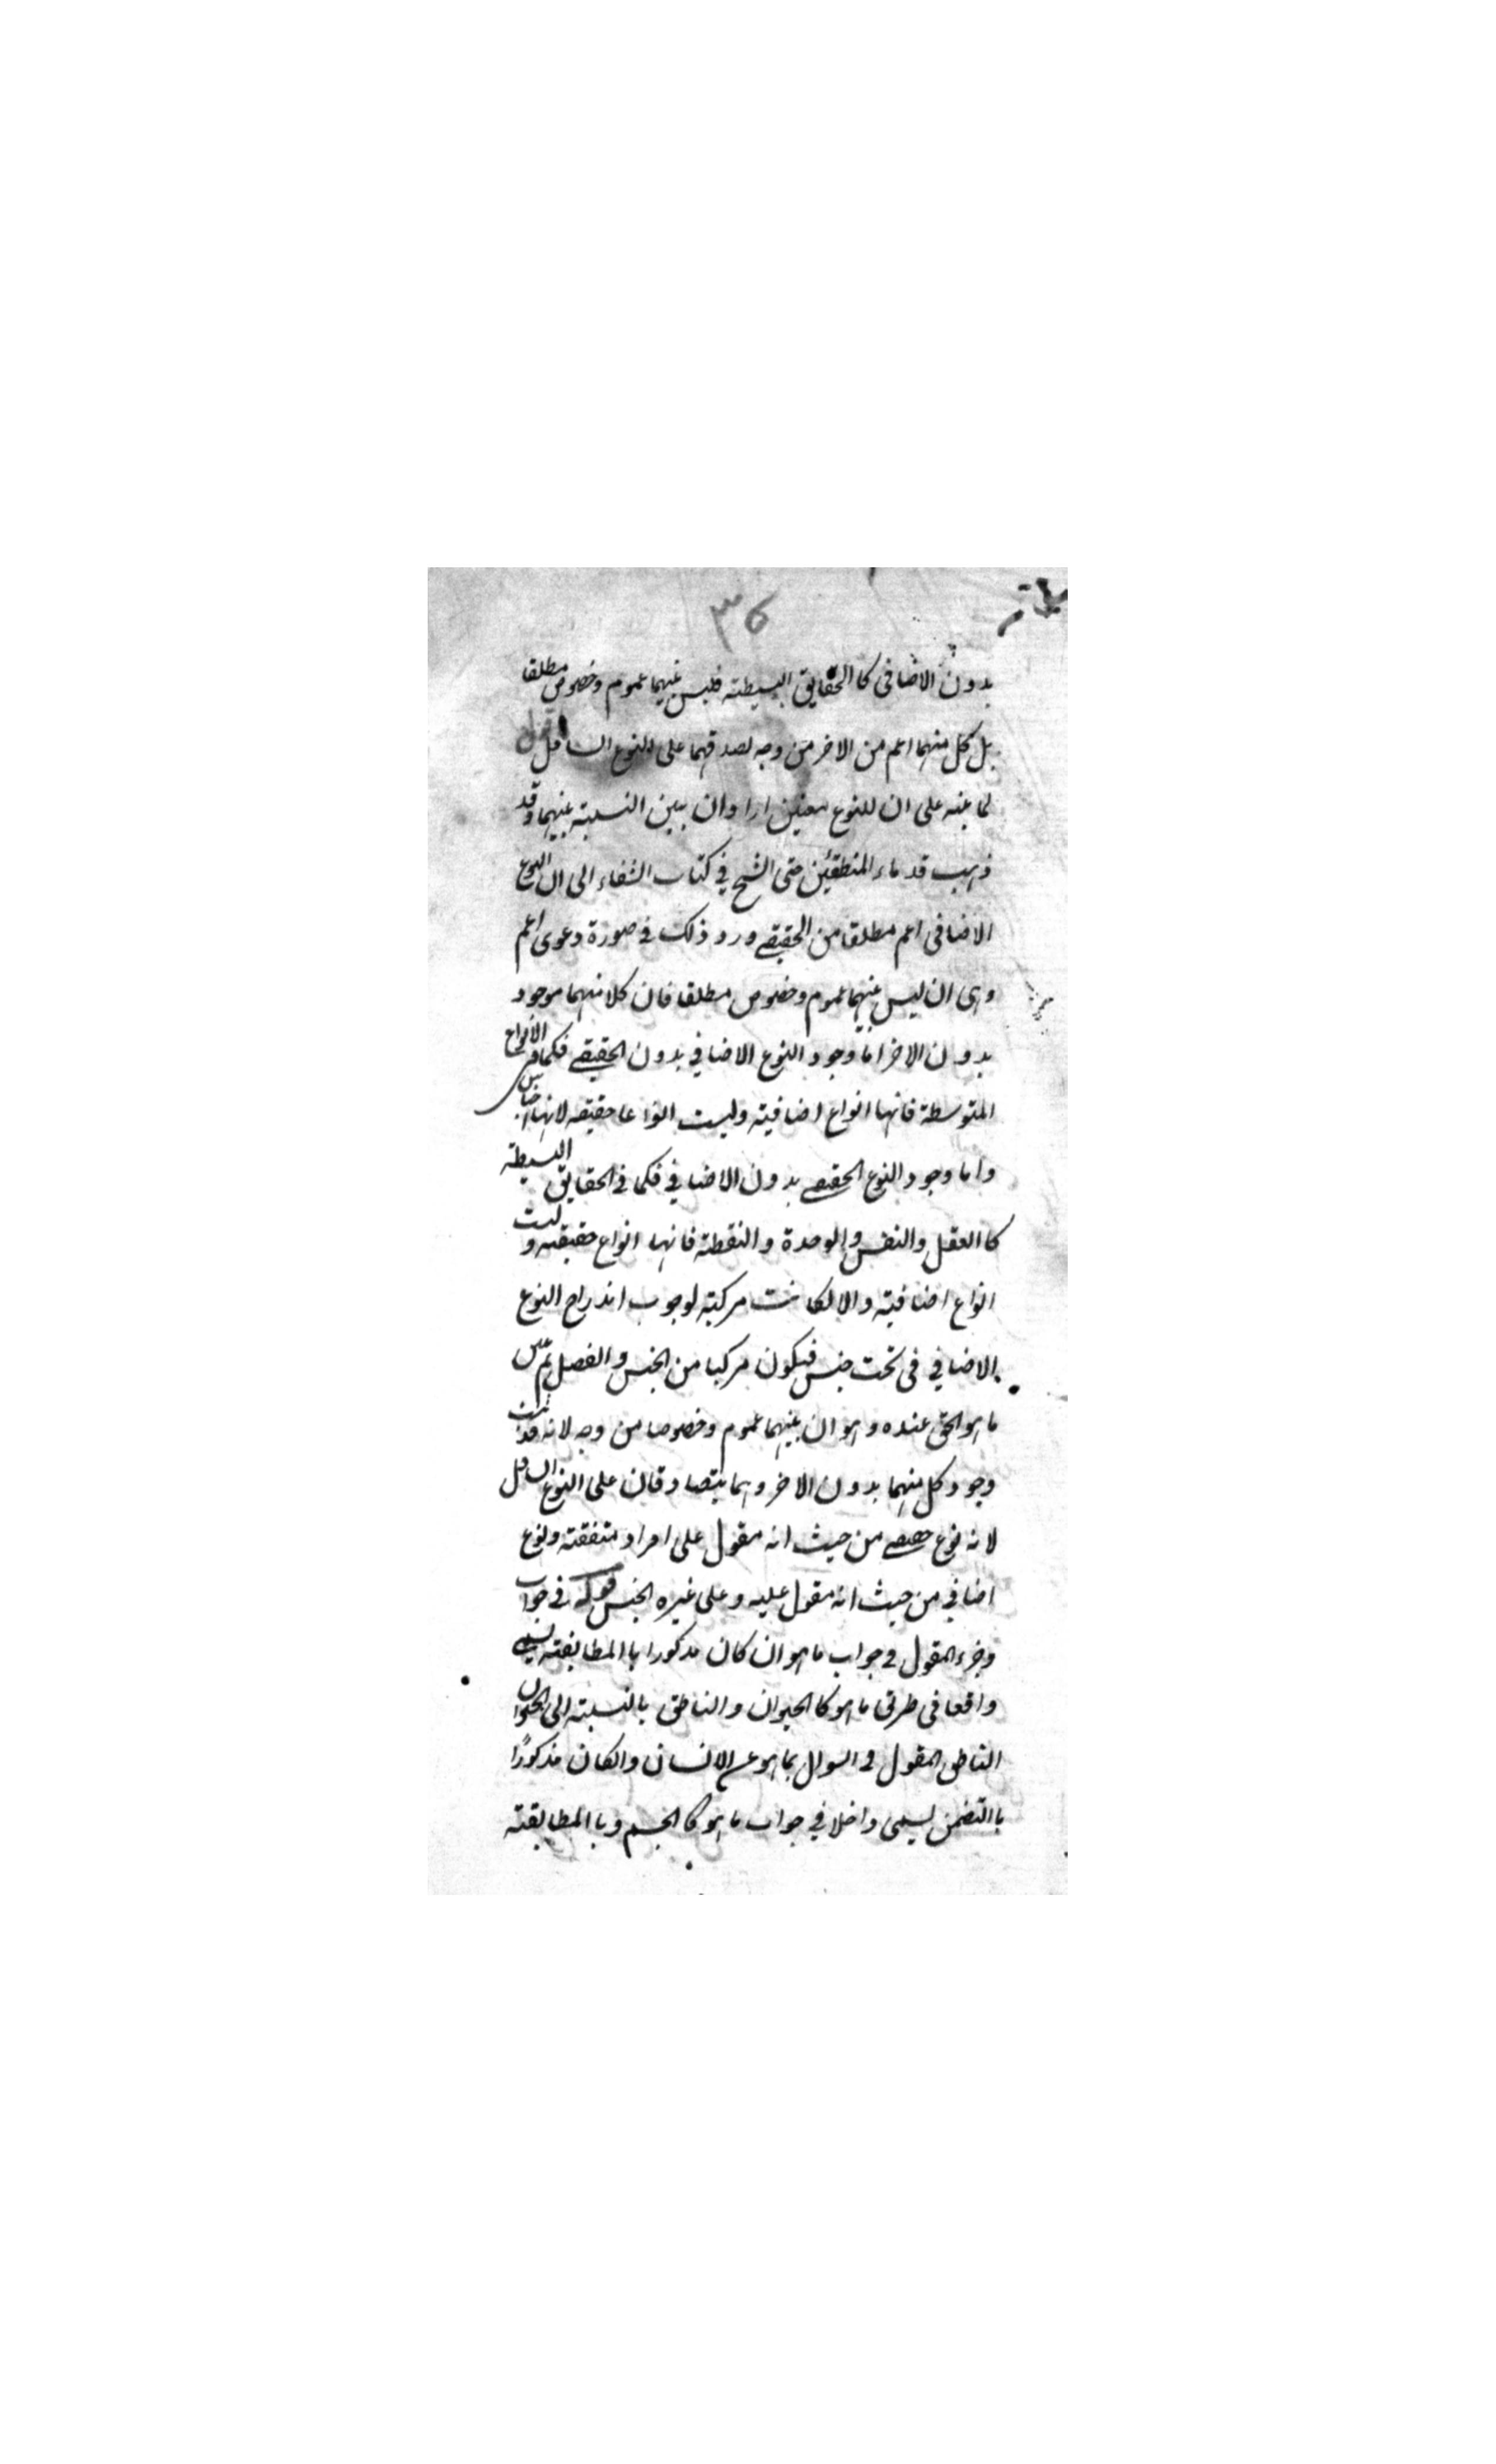 ٣٥
بدون الاضافى كا الحقايق البسيطته فليس بينهما عموم وخصوص مطلقا
بل كل منهما اعم من الاخر من وجه لصدقهما على النوع السافل اقول
لما نبه على ان للنوع معنين اراد ان يبين النسبته بينهما وقد
ذهب قدماء المنطقئين حتى الشيخ في كتاب الشفاء الى ان النوع
الاضافى اعم مطلقا من الحقيقے ورد ذلك فے صورة دعوى اعم
وهى ان ليس بينهما عموم وخصوص مطلقا فان كلا منهما موجود
بدون الاخر اما وجود النوع الاضافي بدون الحقيقے فكما فى الأنواع
المتوسطة فانها انواع اضافيته وليست انواعا حقيقه لانها اجناس
واما وجود النوع الحقيقے بدون الاضافي فكما فے الحقايق البسيطته
كا العقل والنفس والوحدة والنقطته فانها انواع حقيقته وليست
انواع اضافيته والا لكانت مركبته لوجوب اندراج النوع
الاضافي فى تحت جنس فيكون مركبا من الجنس والفصل ثم بين
ما هو الحق عنده وهو ان بينهما عموم وخصوصا من وجه لانه قد ثبت
وجود كل منهما بدون الاخر وهما يتصادقان على النوع السافل
لانه نوع حقيقے من حيث انه مقول على افراد متفقته ونوع
اضافي من حيث انه مقول عليه وعلى غيره الجنس قوله فے جواب
وجزء المقول فے جواب ما هو ان كان مذكورا با المطابقته يسمى
واقعا فى طرق ما هو كا الحيوان والناطق بالنسبته الى الحيوان
الناطق المقول فے السوال بما هو عن الانسان وانكان مذكورًا
با التضمن يسمى داخلا في جواب ما هو كا الجسم وبا المطابقته